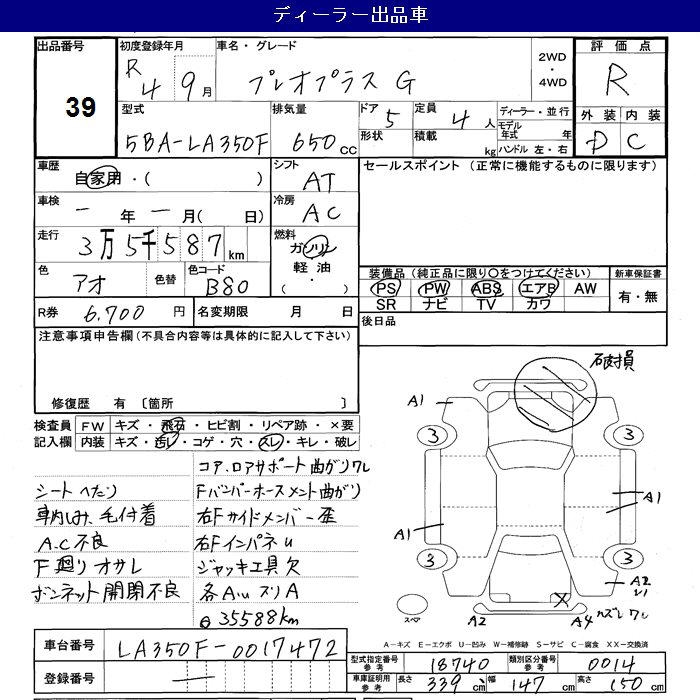 ディーラー出品車
出品番号 初度登録年月 車名・グレード 2WD・4WD 評価点
39 R4 9月 プレオプラス G R
型式 排気量 ドア 5 定員 4人 ディーラー・並行 外装 内装
5BA-LA350F 650cc 形状 積載 kg モデル年式 年 ハンドル 左・右 D C
車歴 自家用・( ) シフト AT セールスポイント (正常に機能するものに限ります)
車検 ー年ー月( 日) 冷房 AC
走行 3万5千587km 燃料 ガソリン 軽油・
色 アオ 色替 色コード B80 装備品 (純正品に限り○をつけてください) 新車保証書
PS PW ABS エアB AW 有・無
SR ナビ TV カワ
R券 6,700円 名変期限 月 日 後日品
注意事項申告欄 (不具合内容等は具体的に記入して下さい)
修復歴 有 〔箇所 〕
検査員記入欄 FW キズ・飛石・ヒビ割・リペア跡・×要
内装 キズ・汚レ・コゲ・穴・スレ・キレ・破レ
コア、ロアサポート曲がりワレ
シートへたり Fバンパーホースメント曲がり
車内しみ、毛付着 右Fサイドメンバー歪
A.C不良 右FインパネU
F廻りオサレ ジャッキ工具欠
ボンネット開閉不良 各AUズリA
35588km
破損
A1
3 3
A1
A1
3 3
A2
U1
スペア A2 A4 カズレワレ
A-キズ E-エクボ U-凹み W-補修跡 S-サビ C-腐食 XX-交換済
車台番号 LA350F-0017472
登録番号 ー
型式指定番号 参考 18740 類別区分番号 参考 0014
車庫証明用 参考 長さ 339cm 幅 147cm 高さ 150cm